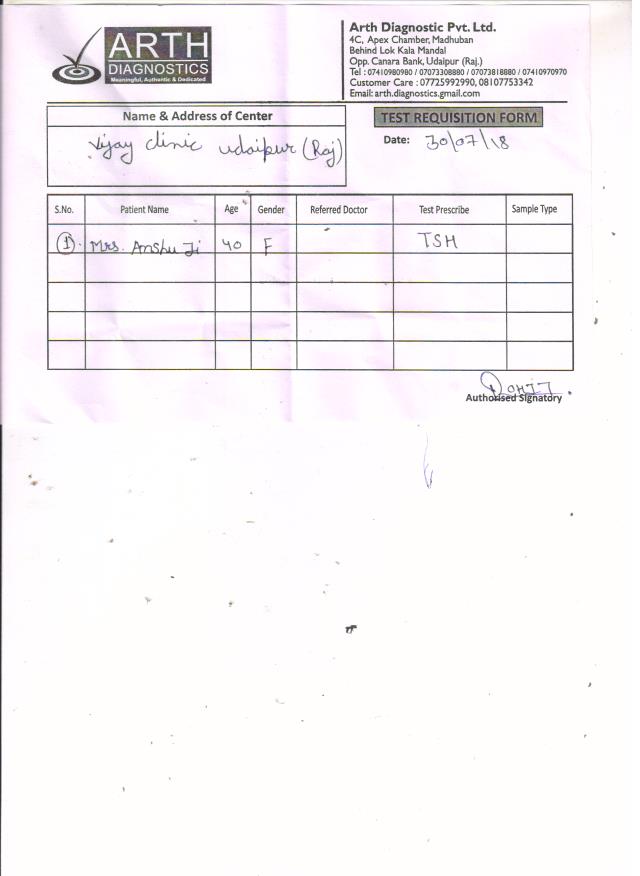 ARTH
DIAGNOSTICS
Meaningful, Authentic & Dedicated
Arth Diagnostic Pvt. Ltd.
4C, Apex Chamber, Madhuban
Behind Lok Kala Mandal
Opp. Canara Bank, Udaipur (Raj.)
Tel : 07410980980 / 07073308880 / 07073818880 / 07410970970
Customer Care : 07725992990, 08107753342
Email: arth.diagnostics.gmail.com
Name & Address of Center
Vijay clinic udaipur (Raj)
TEST REQUISITION FORM
Date: 30/07/18
S.No. Patient Name Age Gender Referred Doctor Test Prescribe Sample Type
1. Mrs. Anshu Ji 40 F TSH
ROHIT
Authorised Signatory